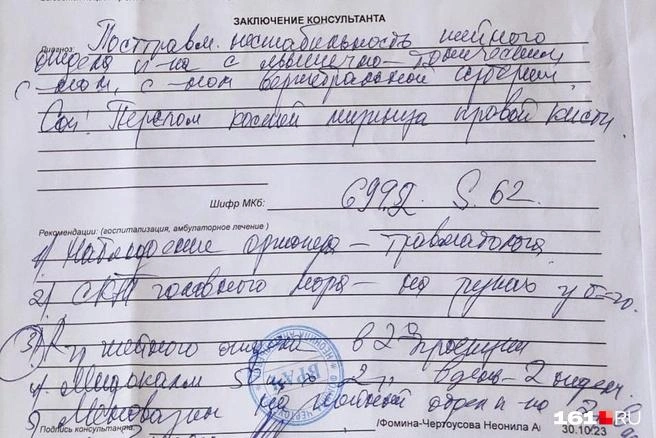 ЗАКЛЮЧЕНИЕ КОНСУЛЬТАНТА
Диагноз: Посттравм. нестабильность шейного
отдела п-ка с мышечно-тоническим
с-мом, с-мом вертебральной
Соп: Перелом костей мизинца правой кисти.
Шифр МКб: G99.2. S.62.
Рекомендации: (госпитализация, амбулаторное лечение)
1) Наблюдение ортопеда - травматолога
2) СКТ головного мозга - на руках у б-го.
3) R шейного отдела в 2х проекции
4) Мидокалм 2 в день - 2 недели.
5) Меновазин на шейный отдел п-ка
ВРАЧ
Подпись консультанта /Фомина-Чертоусова Неонила Ан 30.10.23
161.RU